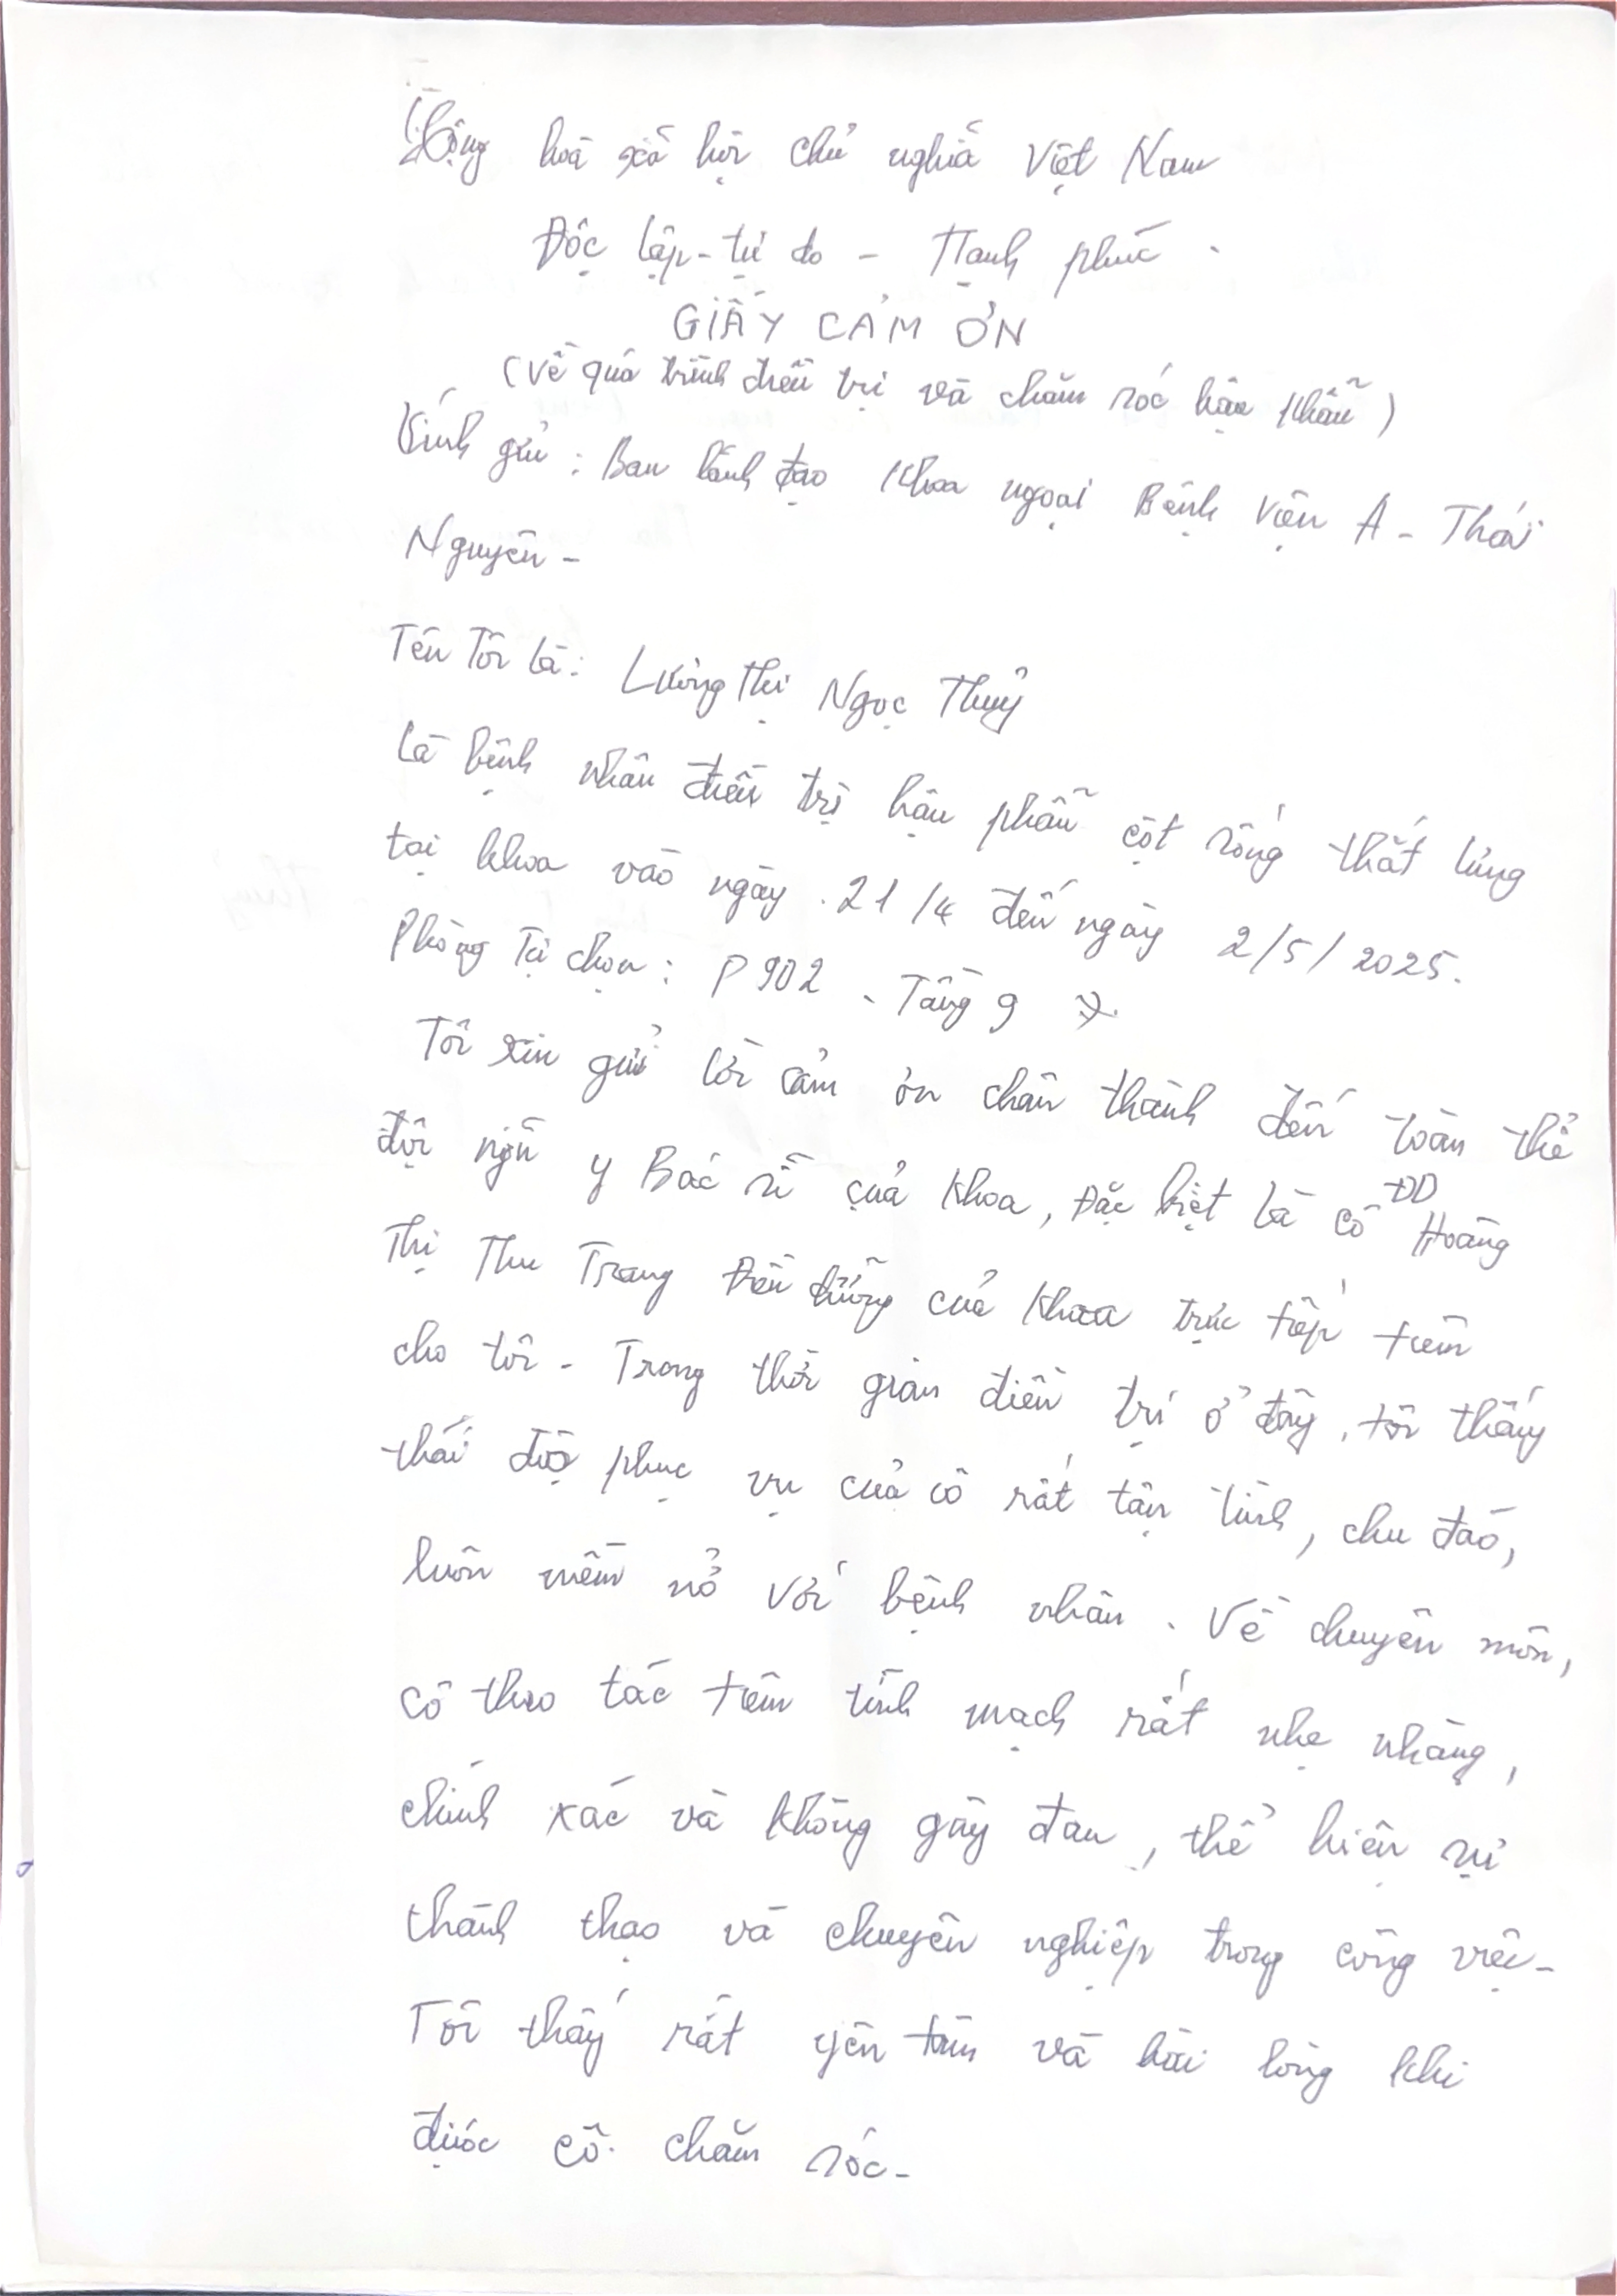 Cộng hoà xã hội chủ nghĩa Việt Nam
Độc lập - tự do - Hạnh phúc.
GIẤY CẢM ƠN
(Về quá trình điều trị và chăm sóc hậu phẫu)
Kính gửi: Ban lãnh đạo khoa ngoại Bệnh Viện A - Thái
Nguyên -
Tên Tôi là: Lường Thị Ngọc Thuỷ
Là bệnh nhân điều trị hậu phẫu cột sống thắt lưng
tại khoa vào ngày . 21/4 đến ngày 2/5/2025.
Phòng Tự chọn: P902 - Tầng 9
Tôi xin gửi lời cảm ơn chân thành đến toàn thể
đội ngũ y Bác sĩ của khoa, Đặc biệt là cô ĐD Hoàng
Thị Thu Trang Điều dưỡng của khoa trực tiếp tiêm
cho tôi - Trong thời gian điều trị ở đây, tôi thấy
thái độ phục vụ của cô rất tận tình, chu đáo,
luôn niềm nở với bệnh nhân. Về chuyên môn,
cô thao tác tiêm tĩnh mạch rất nhẹ nhàng,
chính xác và không gây đau, thể hiện sự
thành thạo và chuyên nghiệp trong công việc -
Tôi thấy rất yên tâm và hài lòng khi
được cô chăm sóc -